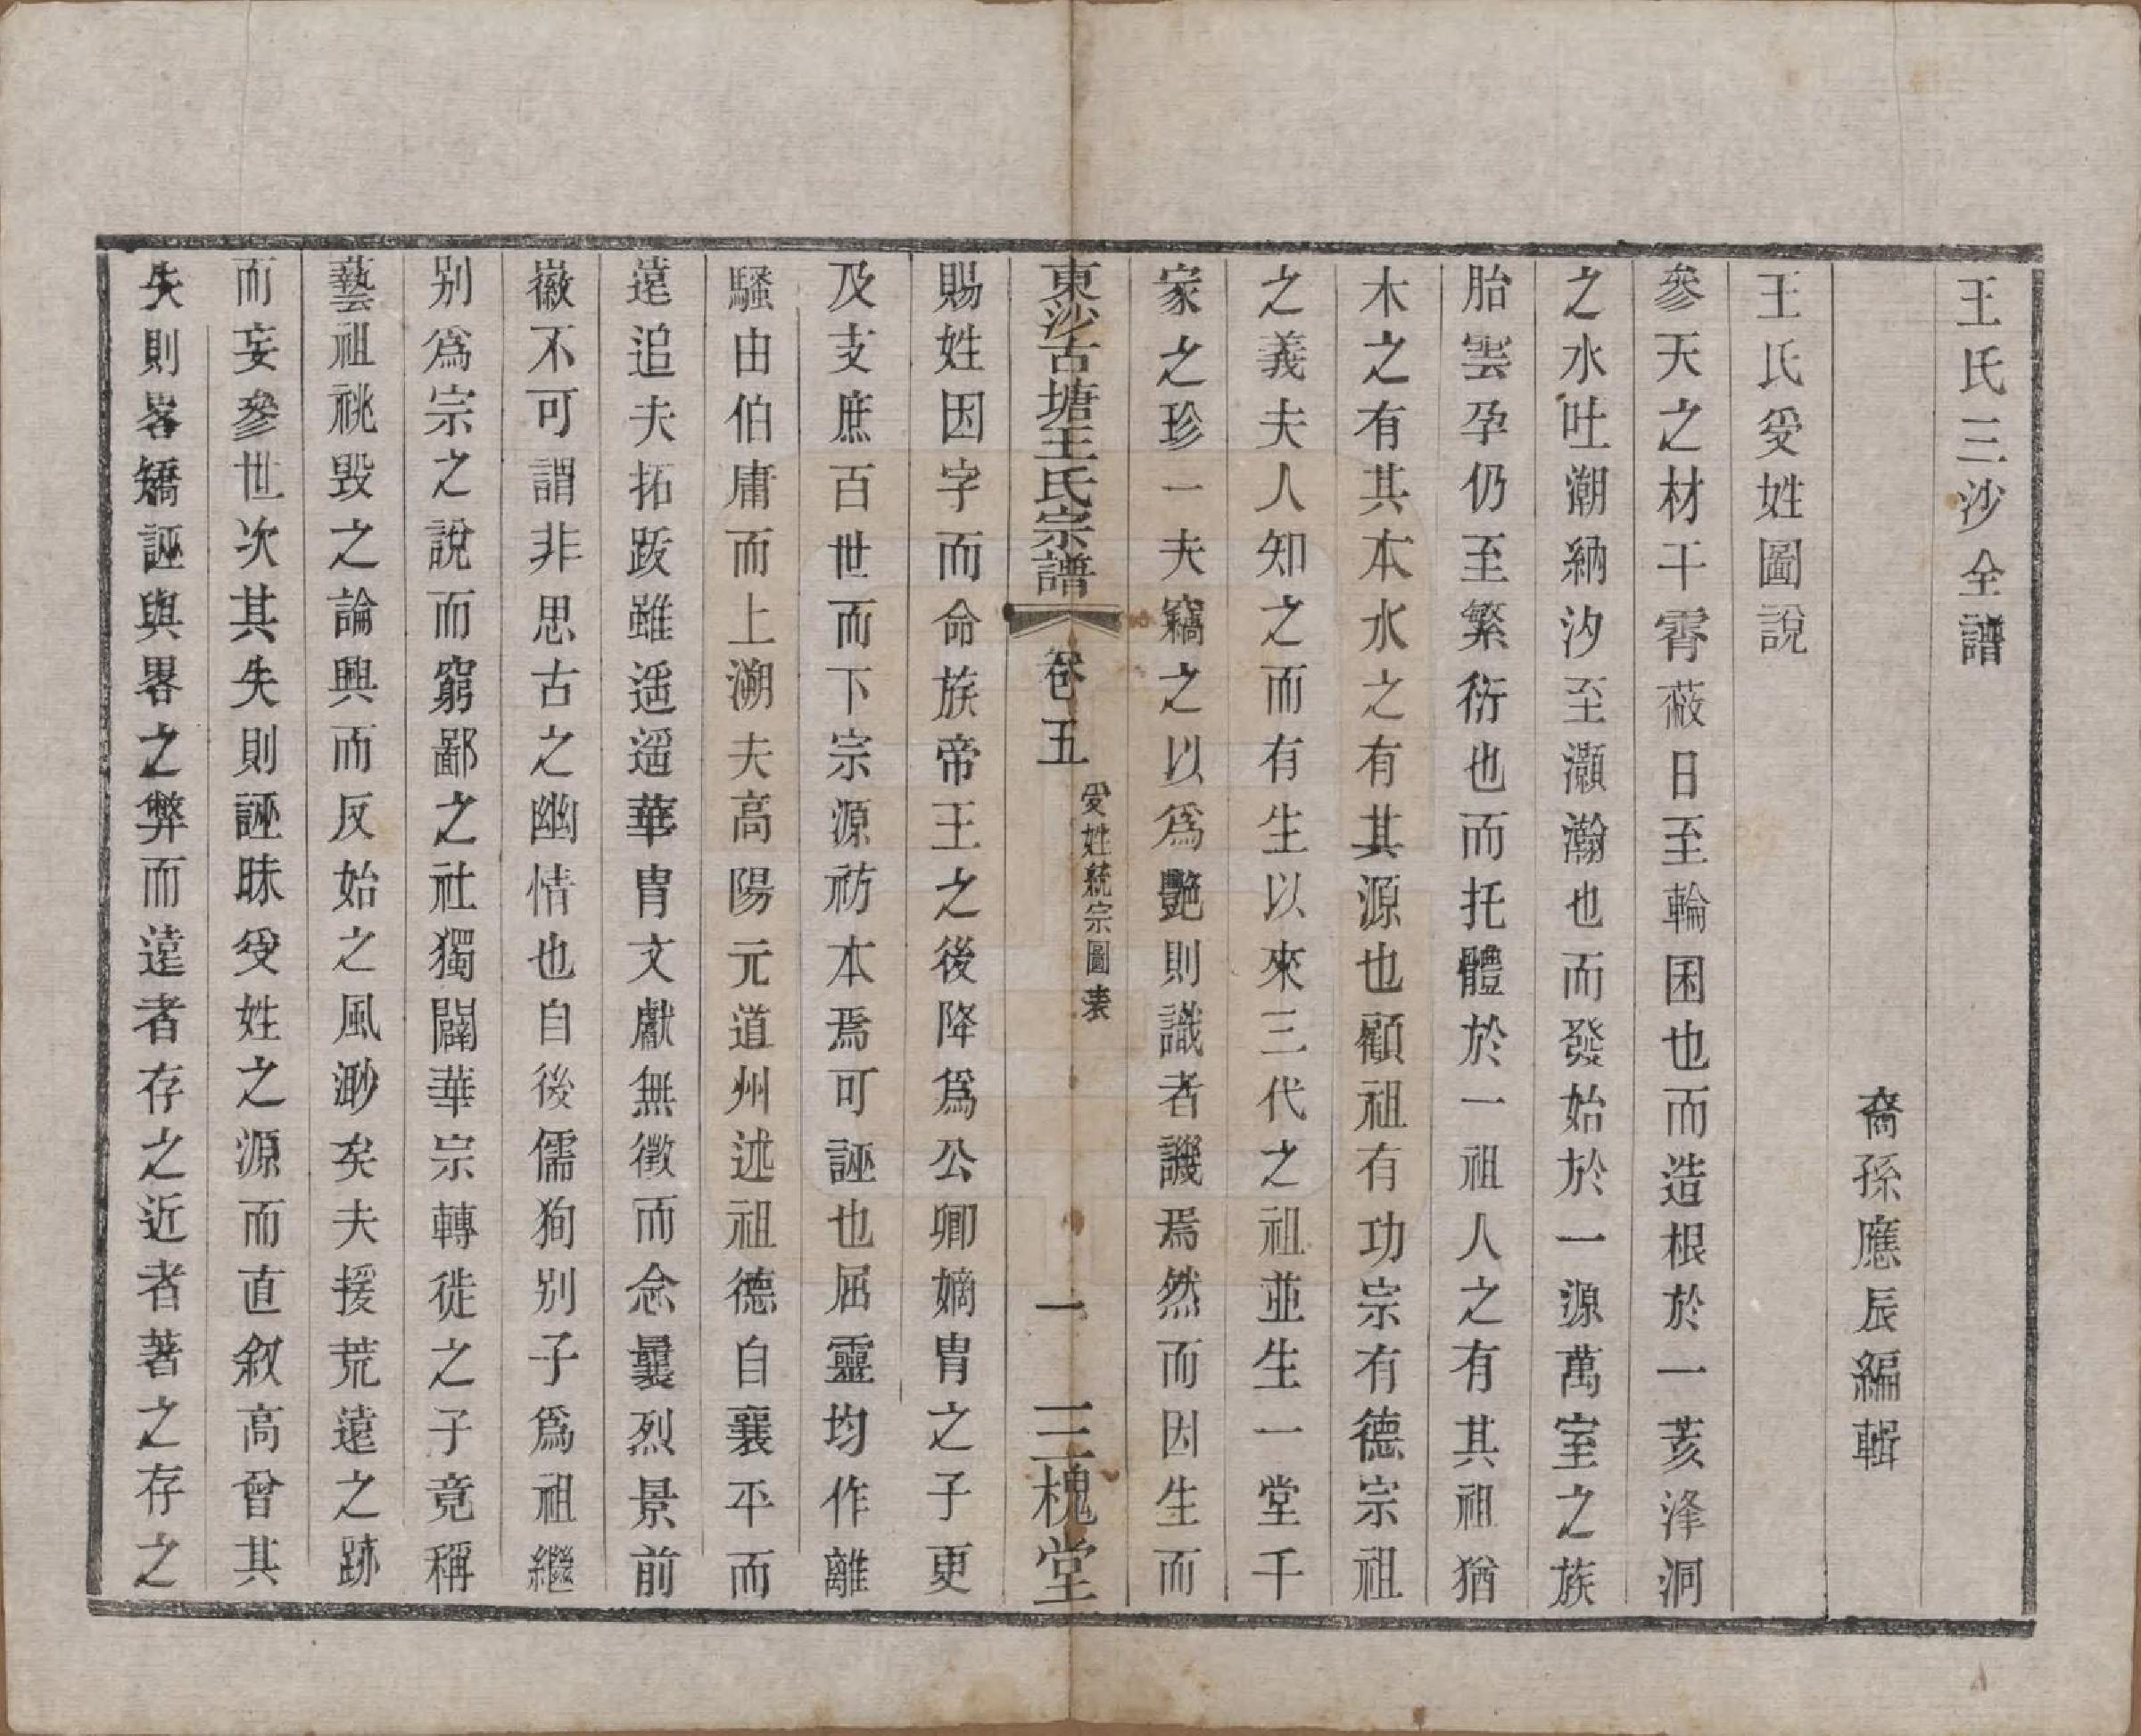 王氏三沙全譜
裔孫應辰編輯
王氏受姓圖說
參天之材干霄蔽日至輪囷也而造根於一荄洚洞
之水吐潮納汐至灝瀚也而發始於一源萬室之族
胎雲孕仍至繁衍也而托體於一祖人之有其祖猶
木之有其本水之有其源也顧祖有功宗有德宗祖
之義夫人知之而有生以來三代之祖並生一堂千
家之珍一夫竊之以爲艷則識者譏焉然而因生而
東沙古塘王氏宗譜 卷五 受姓統宗圖表 一 三槐堂
賜姓因字而命族帝王之後降爲公卿嫡胄之子更
及支庶百世而下宗源祊本焉可誣也屈靈均作離
騷由伯庸而上溯夫高陽元道州述祖德自襄平而
遠追夫拓跋雖遙遙華胄文獻無徵而念曩烈景前
徽不可謂非思古之幽情也自後儒狥别子爲祖繼
别爲宗之說而窮鄙之社獨闢華宗轉徙之子竟稱
藝祖祧毀之論興而反始之風渺矣夫援荒遠之跡
而妄參世次其失則誣昧受姓之源而直敘高曾其
失則畧矯誣與畧之弊而遠者存之近者著之存之